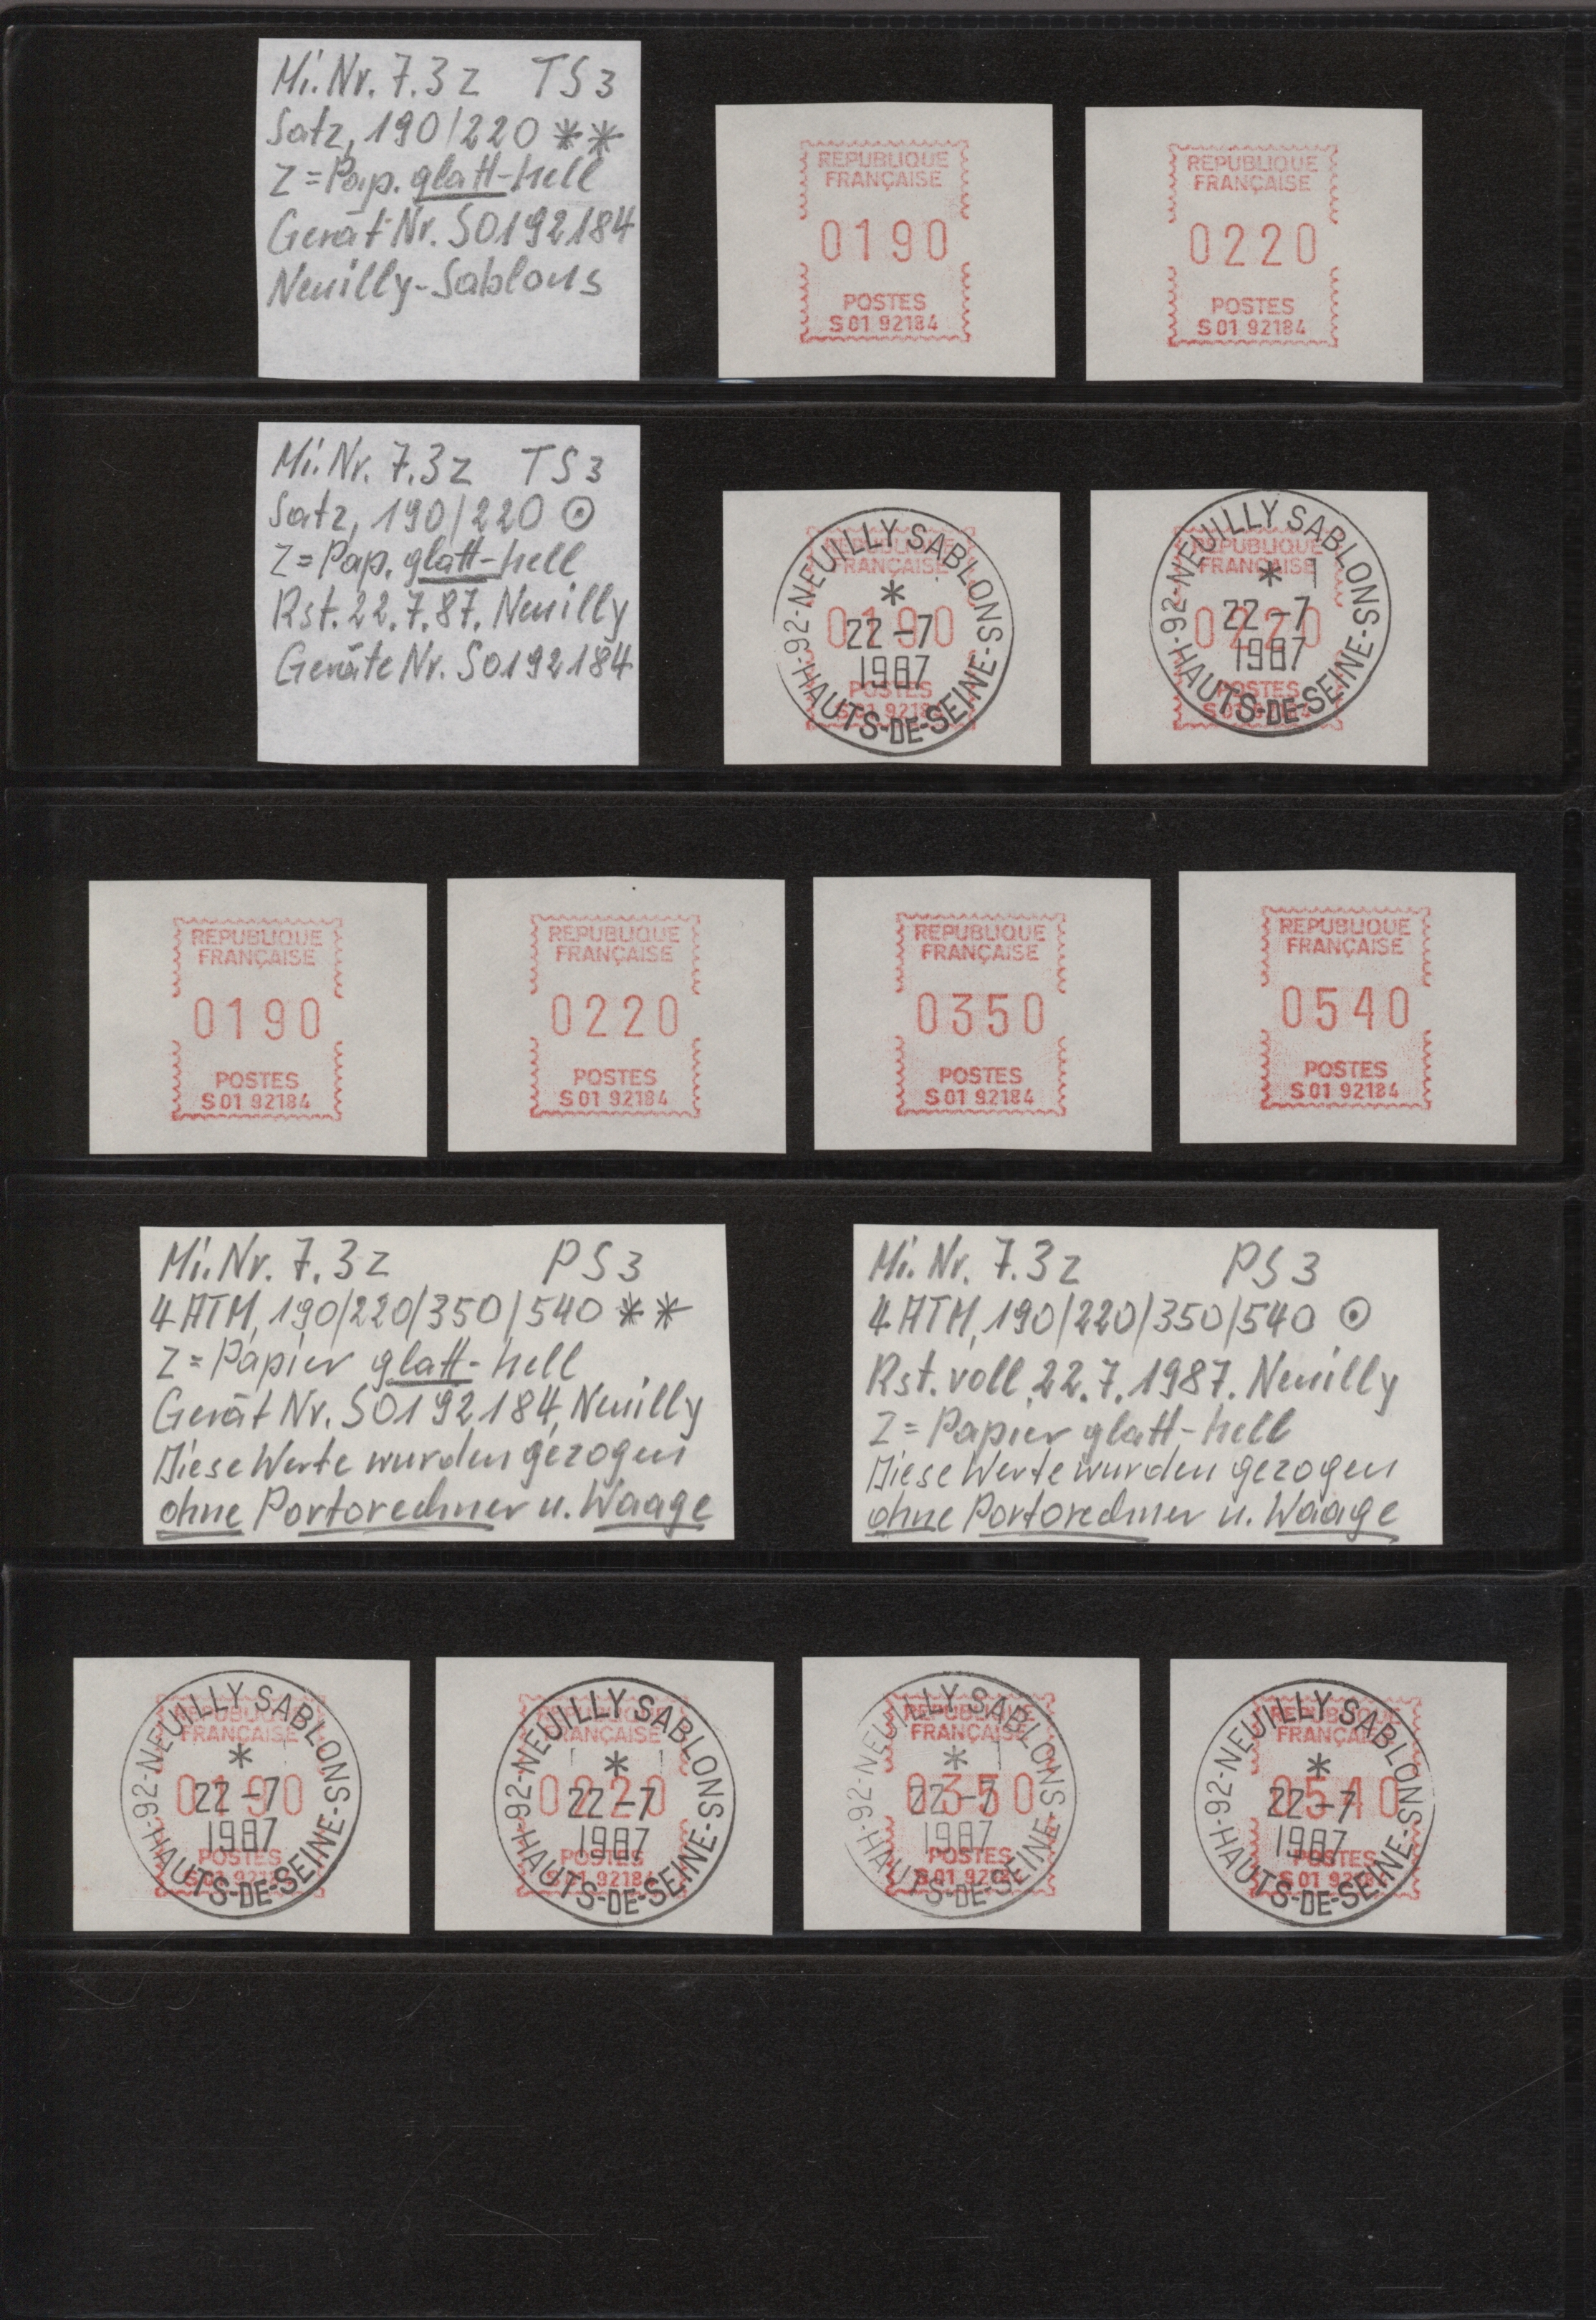 Mi.Nr. 7.3z TS3
Satz, 190/220 **
Z = Pap. glatt-hell
Gerät Nr. S0192184
Neuilly-Sablons
REPUBLIQUE
FRANÇAISE
0190
POSTES
S 01 92184
REPUBLIQUE
FRANÇAISE
0220
POSTES
S 01 92184
Mi.Nr. 7.3z TS3
Satz, 190/220 ⊙
Z = Pap. glatt-hell
Rst. 22.7.87. Neuilly
Geräte Nr. S0192184
REPUBLIQUE
FRANÇAISE
0190
POSTES
S 01 92184
92-NEUILLY SABLONS
*
22-7
1987
-HAUTS-DE-SEINE-
REPUBLIQUE
FRANÇAISE
0220
POSTES
92-NEUILLY SABLONS
*
22-7
1987
-HAUTS-DE-SEINE-
REPUBLIQUE
FRANÇAISE
0190
POSTES
S 01 92184
REPUBLIQUE
FRANÇAISE
0220
POSTES
S 01 92184
REPUBLIQUE
FRANÇAISE
0350
POSTES
S 01 92184
REPUBLIQUE
FRANÇAISE
0540
POSTES
S 01 92184
Mi.Nr. 7.3z PS3
4 ATM, 190/220/350/540 **
Z = Papier glatt-hell
Gerät Nr. S0192184, Neuilly
Diese Werte wurden gezogen
ohne Portorechner u. Waage
Mi. Nr. 7.3z PS3
4 ATM, 190/220/350/540 ⊙
Rst. voll 22.7.1987. Neuilly
Z = Papier glatt-hell
Diese Werte wurden gezogen
ohne Portorechner u. Waage
FRANÇAISE
0190
POSTES
92-NEUILLY SABLONS
*
22-7
1987
-HAUTS-DE-SEINE-
FRANÇAISE
0220
POSTES
S 01 92184
92-NEUILLY SABLONS
*
22-7
1987
-HAUTS-DE-SEINE-
REPUBLIQUE
FRANÇAISE
0350
POSTES
S 01 92184
92-NEUILLY SABLONS
*
22-7
1987
-HAUTS-DE-SEINE-
REPUBLIQUE
FRANÇAISE
0540
POSTES
S 01 92184
92-NEUILLY SABLONS
*
22-7
1987
-HAUTS-DE-SEINE-